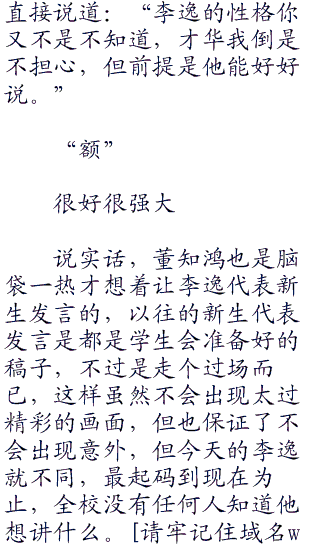 直接说道：“李逸的性格你
又不是不知道，才华我倒是
不担心，但前提是他能好好
说。”
“额”
很好很强大
说实话，董知鸿也是脑
袋一热才想着让李逸代表新
生发言的，以往的新生代表
发言是都是学生会准备好的
稿子，不过是走个过场而
已，这样虽然不会出现太过
精彩的画面，但也保证了不
会出现意外，但今天的李逸
就不同，最起码到现在为
止，全校没有任何人知道他
想讲什么。[请牢记住域名w